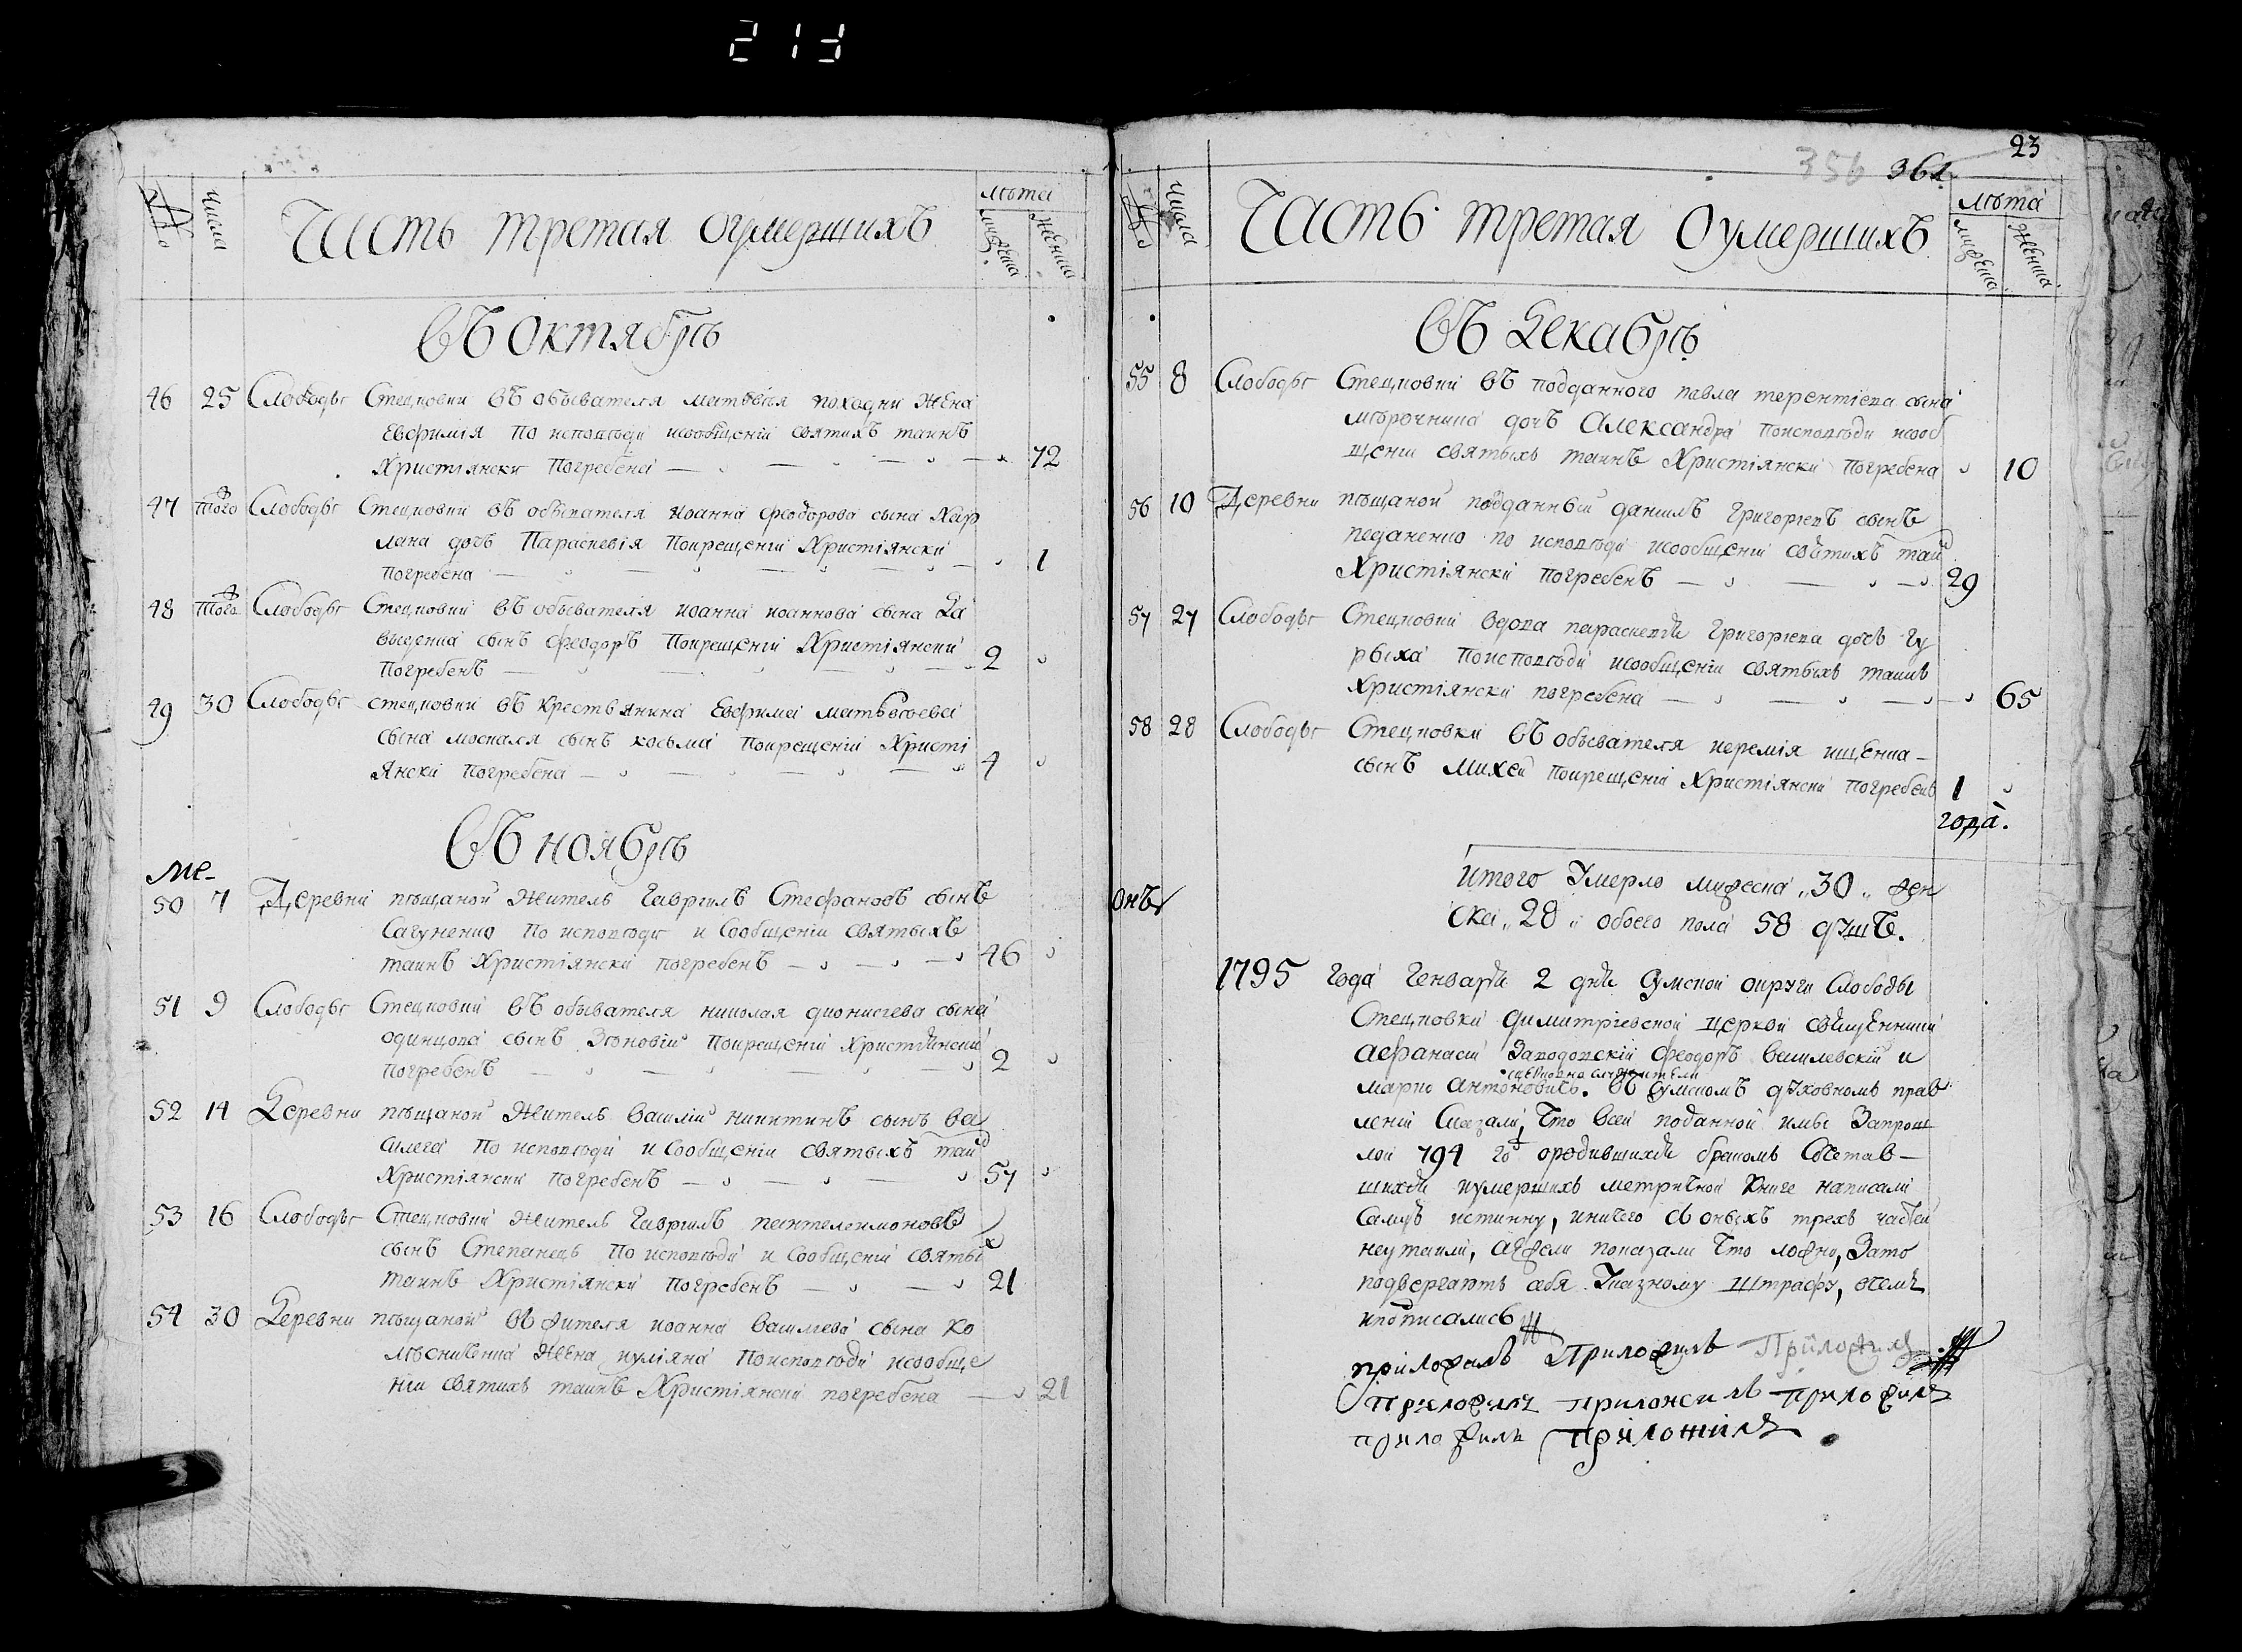 213
№
числа
Часть третая оумершихъ
лѣта
мужеска
женска
Въ Октябрѣ
46 25 Слободы Стецковки въ обывателя матвѣя походни жена
Евфимія по исповѣди исообщеніи святихъ таинъ
Христіянски погребена 72
47 того Слободы Стецковки въ обывателя иоанна феодорова сына Хар
лана дочъ Параскевія покрещеніи Христіянски
погребена 1
48 того Слободы Стецковки въ обывателя иоанна иоаннова сына Да
выденка сынъ феодоръ покрещеніи Христіянски
погребенъ 2
49 30 Слободы стецковки въ крествянина Евфима матвѣева
сына москаля сынъ косьма покрещеніи Христі
янски погребена 4
Въ ноябрѣ
ме-
50 7 Деревни пѣщаной житель Гавріилъ Стефановъ сынъ
Сагуненко по исповѣди и Сообщеніи святыхъ
таинъ Христіянски погребенъ 46
51 9 Слободы Стецковки въ обывателя николая дионисіева сына
одинцова сынъ Зѣновій покрещеніи Христіянски
погребенъ 2
52 14 Деревни пѣщаной житель Василій никитинъ сынъ ва
силега по исповѣди и Сообщеніи святыхъ таин
Христіянски погребенъ 57
53 16 Слободы Стецковки житель Гавріилъ пантелеимоновъ
сынъ Степанецъ По исповѣди и Сообщеніи святых
таинъ Христіянски погребенъ 21
54 30 Деревни пѣщаной въ жителя иоанна Василіева сына Ко
лѣсниченка жена иуліяна Поисповѣди исообще
ніи святихъ таинъ Христіянски погребена 21
23
356 361
№
числа
Часть третая Оумершихъ
лѣта
мужеска
женска
Въ Декабрѣ
55 8 Слободы Стецковки въ подданного павла терентіева сына
мѣрочника дочъ Александра поисповѣди исооб
щеніи святыхъ таинъ Христіянски погребена 10
56 10 Деревни пѣщаной подданный даниилъ Григоріевъ сынъ
педаненко по исповѣди исообщеніи святихъ таин
Христіянски погребенъ 29
57 27 Слободы Стецковки вдова параскевія Григоріева дочъ Гу
рвиха Поисповѣди исообщеніи святыхъ таинъ
Христіянски погребена 65
58 28 Слободы Стецковки въ обывателя иеремія ищенка
сынъ Михей покрещеніи Христіянски погребенъ 1
года.
онъ
итого Умерло мужеска 30 жен
ска 28 обоего пола 58 душъ.
1795 года Генваря 2 дня Сумской округи Слободы
Стецковки димитріевской церкви священники
Афанасій Заводовскій феодоръ Василевскій и
сцерковно служители
марко антоновичъ. въ Сумскомъ духовномъ прав
леніи Сказали, Что всей поданной имы Запрош
лой 794 го ородившихся бракомъ Сочетав-
шихся иумершихъ метричной Книге написали
Самую истинну, иничего съ оныхъ трехъ частей
неутаили, аежели показали Что ложно, Зато
подвергаютъ себя Указному Штрафу, всемъ
иподписались
приложилъ Приложилъ Приложилъ
приложилъ приложилъ приложилъ
приложилъ приложилъ